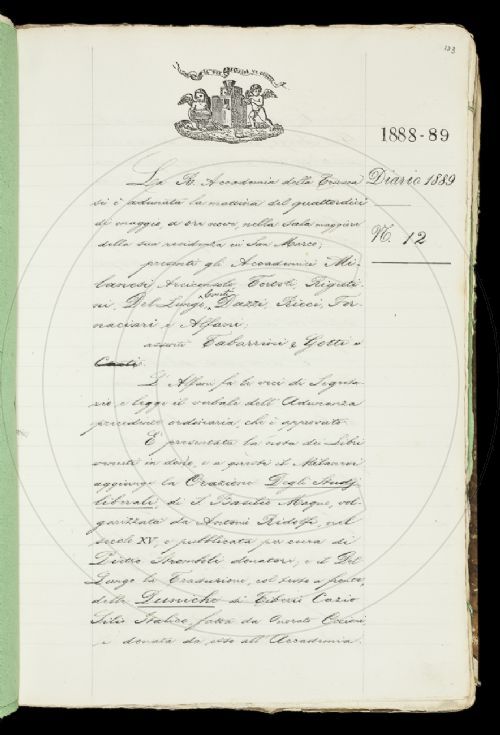 133
1888-89
Diario 1889
N. 12
La R. Accademia della Crusca
si è adunata la mattina del quattordici
di maggio, a ore nove, nella Sala maggiore
della sua residenza in San Marco;
presenti gli Accademici Mi-
lanesi, Arciconsolo, Tortoli, Riguti-
ni, Del Lungo, Conti, Dazzi, Ricci, For-
naciari e Alfani;
assenti Tabarrini e Gotti e
Conti.
L'Alfani fa le veci di Segreta-
rio, e legge il verbale dell'Adunanza
precedente ordinaria, che è approvato.
È presentata la nota dei Libri
venuti in dono, e a questi il Milanesi
aggiunge la Orazione Degli Studj
liberali, di S. Basilio Magno, vol-
garizzata da Antonio Ridolfi, nel
secolo XV, e pubblicata per cura di
Pietro Stromboli donatore, e il Del
Lungo la Traduzione, col testo a fronte,
delle Puniche di Tiberio Cazio
Silio Italico, fatta da Onorato Occioni
e donata da esso all'Accademia.